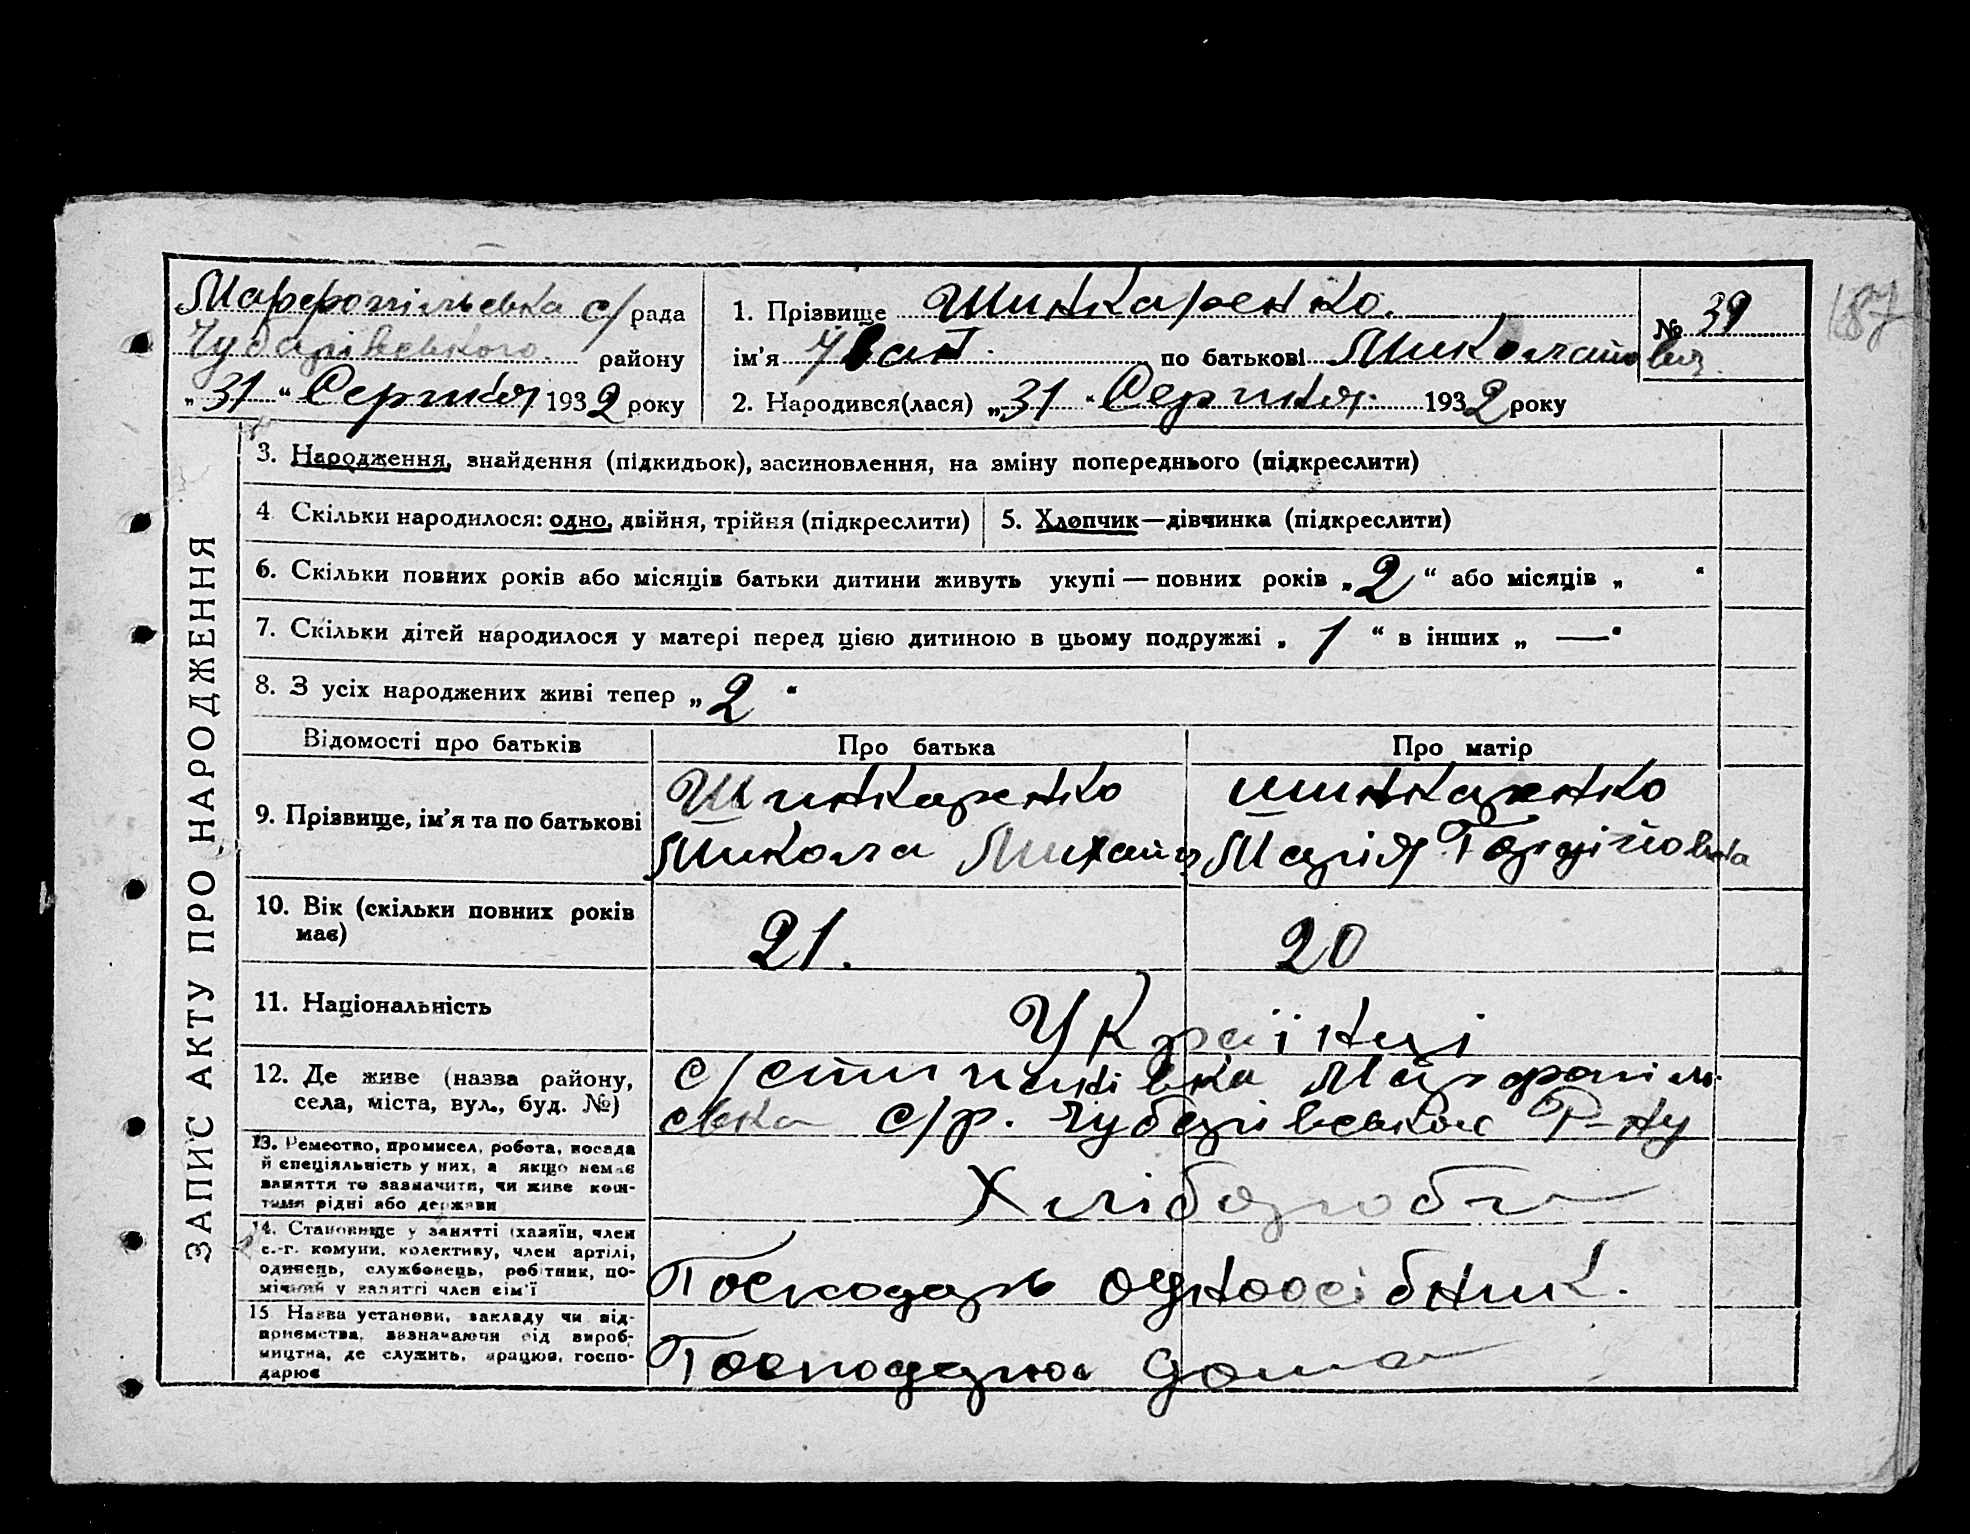 187
Марфопільська с/рада
Чубарівського району
„31“ Серпня 1932 року
1. Прізвище Шинкаренко.
ім'я Іван по батькові Миколайович.
№ 39
2. Народився(лася) „31“ Серпня 1932 року
ЗАПИС АКТУ ПРО НАРОДЖЕННЯ
3. Народження, знайдення (підкидьок), засиновлення, на зміну попереднього (підкреслити)
4 Скільки народилося: одно, двійня, трійня (підкреслити)
5. Хлопчик—дівчинка (підкреслити)
6. Скільки повних років або місяців батьки дитини живуть укупі — повних років „2“ або місяців „ “
7. Скільки дітей народилося у матері перед цією дитиною в цьому подружжі „1“ в інших „—“
8. З усіх народжених живі тепер „2“
Відомості про батьків
Про батька
Про матір
9. Прізвище, ім'я та по батькові
Шинкаренко
Микола Михайл
Шинкаренко
Марія Гордійовна
10. Вік (скільки повних років
має)
21.
20
11. Національність
Українці
12. Де живе (назва району,
села, міста, вул., буд. №)
с/ Марфопіль-
ська с/р. Чубарівського Р-ну
13. Ремество, промисел, робота, посада
й спеціяльність у них, а якщо немає
заняття то зазначити, чи живе кош-
тами рідні або держави
Хлібороби
14. Становище у занятті (хазяїн, член
с.-г. комуни, колективу, член артілі,
одинець, службовець, робітник, по-
мічний у занятті член сім'ї
Господарь одноосібник.
15 Назва установи, закладу чи під-
приємства, зазначаючи рід вироб-
ництва, де служить, працює, госпо-
дарює
Господарює дома